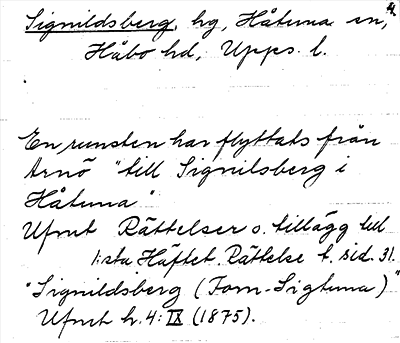 Signildsberg, hg, Håtuna sn, 4.
Håbo hd, Upps. l.
En runsten har flyttats från
Arnö "till Signilsberg i
Håtuna"
Ufmt Rättelser o. tillägg till
1:sta Häftet. Rättelse t. sid. 31.
"Signildsberg (Forn-Sigtuna)"
Ufmt h. 4: IX (1875).